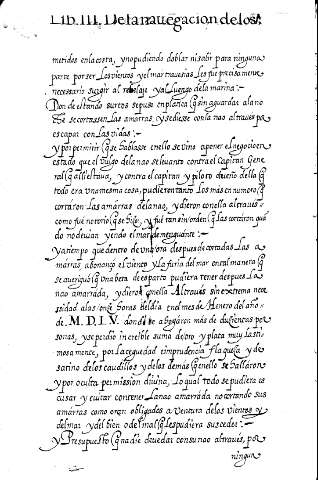 Lib. III. De la nauegacion de los
metidos en la costa, y no pudiendo doblar ni salir para ninguna
parte por ser los vientos y el mar trauesias les fue preciso mene
necessario surgir al y luego de la marina:~
Donde estando surtos se puso en platica q̃ si no
se cortassen las amarras, y se diesse con la nao al traues po
escapar con las vidas:~
y por permitir q̃ se hablasse en ello se vino a poner el negocio en
estado que el vulgo de la nao se leuanto contra el Capitan Gene
ral q̃ alli estaua, y contra el capitan y piloto dueño della q̃
todo era una mesma cosa, pudieron tanto los mas en numero q̃
cortaron las amarras de la nao, y dieron con ella al traues
como fue notorio q̃ se hizo, y fue tan sin orden q̃ las cortaron quã
do no deuian yendo el mar de menguante:~
y a tiempo que dentro de una ora despues de cortadas las a
marras, abonanço el viento y la furia del mar en tal manera q̃
se aueriguo q̃ una beta de esparto pudiera tener despues la
nao amarrada, y dieron con ella Al traues sin extrema nece
sidad a las onze horas del dia en el mes de Henero del año
de. M. D. L V. donde se ahogaron más de duzientas per
sonas, y se perdio increible suma de oro y plata muy lasti
mosamente, por la ceguedad e imprudencia flaqueza y de
satino de los caudillos y de los demas q̃ en ello se hallaron
y por oculta permission diuina, lo qual todo se pudiera es
cusar y euitar con tener la nao amarrada no cortando sus
amarras como eran obligados a ventura de los vientos y
del mar y del bien o del mal q̃ les pudiera suceder:~
y Presupuesto q̃ nadie deue dar con su nao al traues, por
ningun